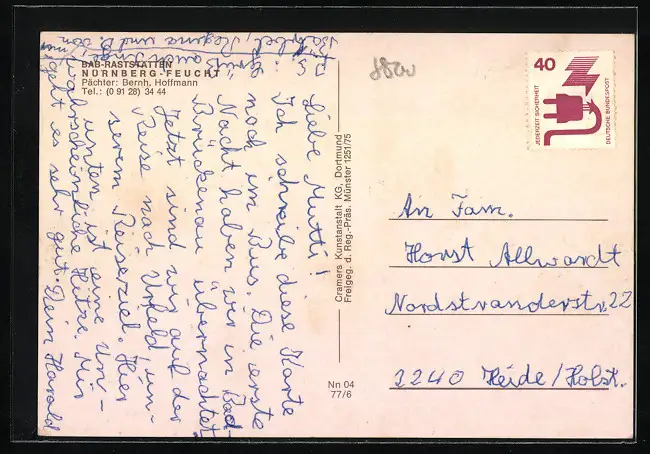 BAB-RASTSTÄTTEN
NÜRNBERG-FEUCHT
Pächter: Bernh. Hoffmann
Tel.: (0 91 28) 34 44
Liebe Mutti!
Ich schreibe diese Karte
noch im Bus. Die erste
Nacht haben wir in Bad-
Brückenau übernachtet.
Jetzt sind wir auf der
Reise nach Urfeld, un-
serem Reiseziel. Hier
unten ist eine un-
wahrscheinliche Hitze. Mir
geht es sehr gut. Dein Harald
Regena und
Cramers Kunstanstalt KG, Dortmund
Freigeg. d. Reg.-Präs. Münster 1251/75
Nn 04
77/6
40
JEDERZEIT SICHERHEIT
DEUTSCHE BUNDESPOST
An Fam.
Horst Allwardt
Nordstranderstr. 22
2240 Heide/Holst.